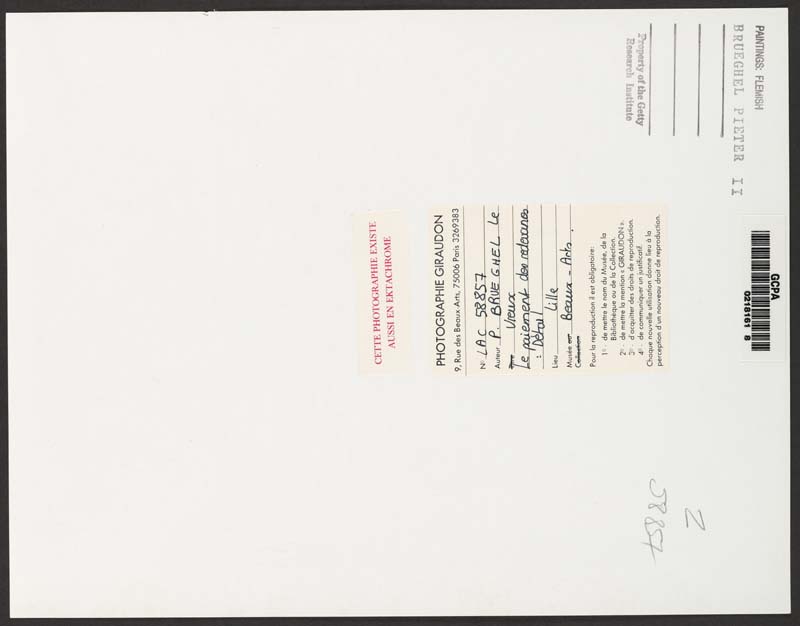 PAINTINGS: FLEMISH
BRUEGHEL PIETER II
Property of the Getty
Research Institute
GCPA
0218161 8
CETTE PHOTOGRAPHIE EXISTE
AUSSI EN EKTACHROME
PHOTOGRAPHIE GIRAUDON
9, Rue des Beaux Arts, 75006 Paris 3269383
N° LAC 58857
Auteur P. BRUEGHEL Le
Vieux
Le paiement des redevances
: Détail
Lieu Lille
Musée ou Beaux-Arts.
Collection
Pour la reproduction il est obligatoire:
1° - de mettre le nom du Musée, de la
Bibliothèque ou de la Collection.
2° - de mettre la mention « GIRAUDON ».
3° - d'acquitter des droits de reproduction.
4° - de communiquer un justificatif.
Chaque nouvelle utilisation donne lieu à la
perception d'un nouveau droit de reproduction.
Z
58857